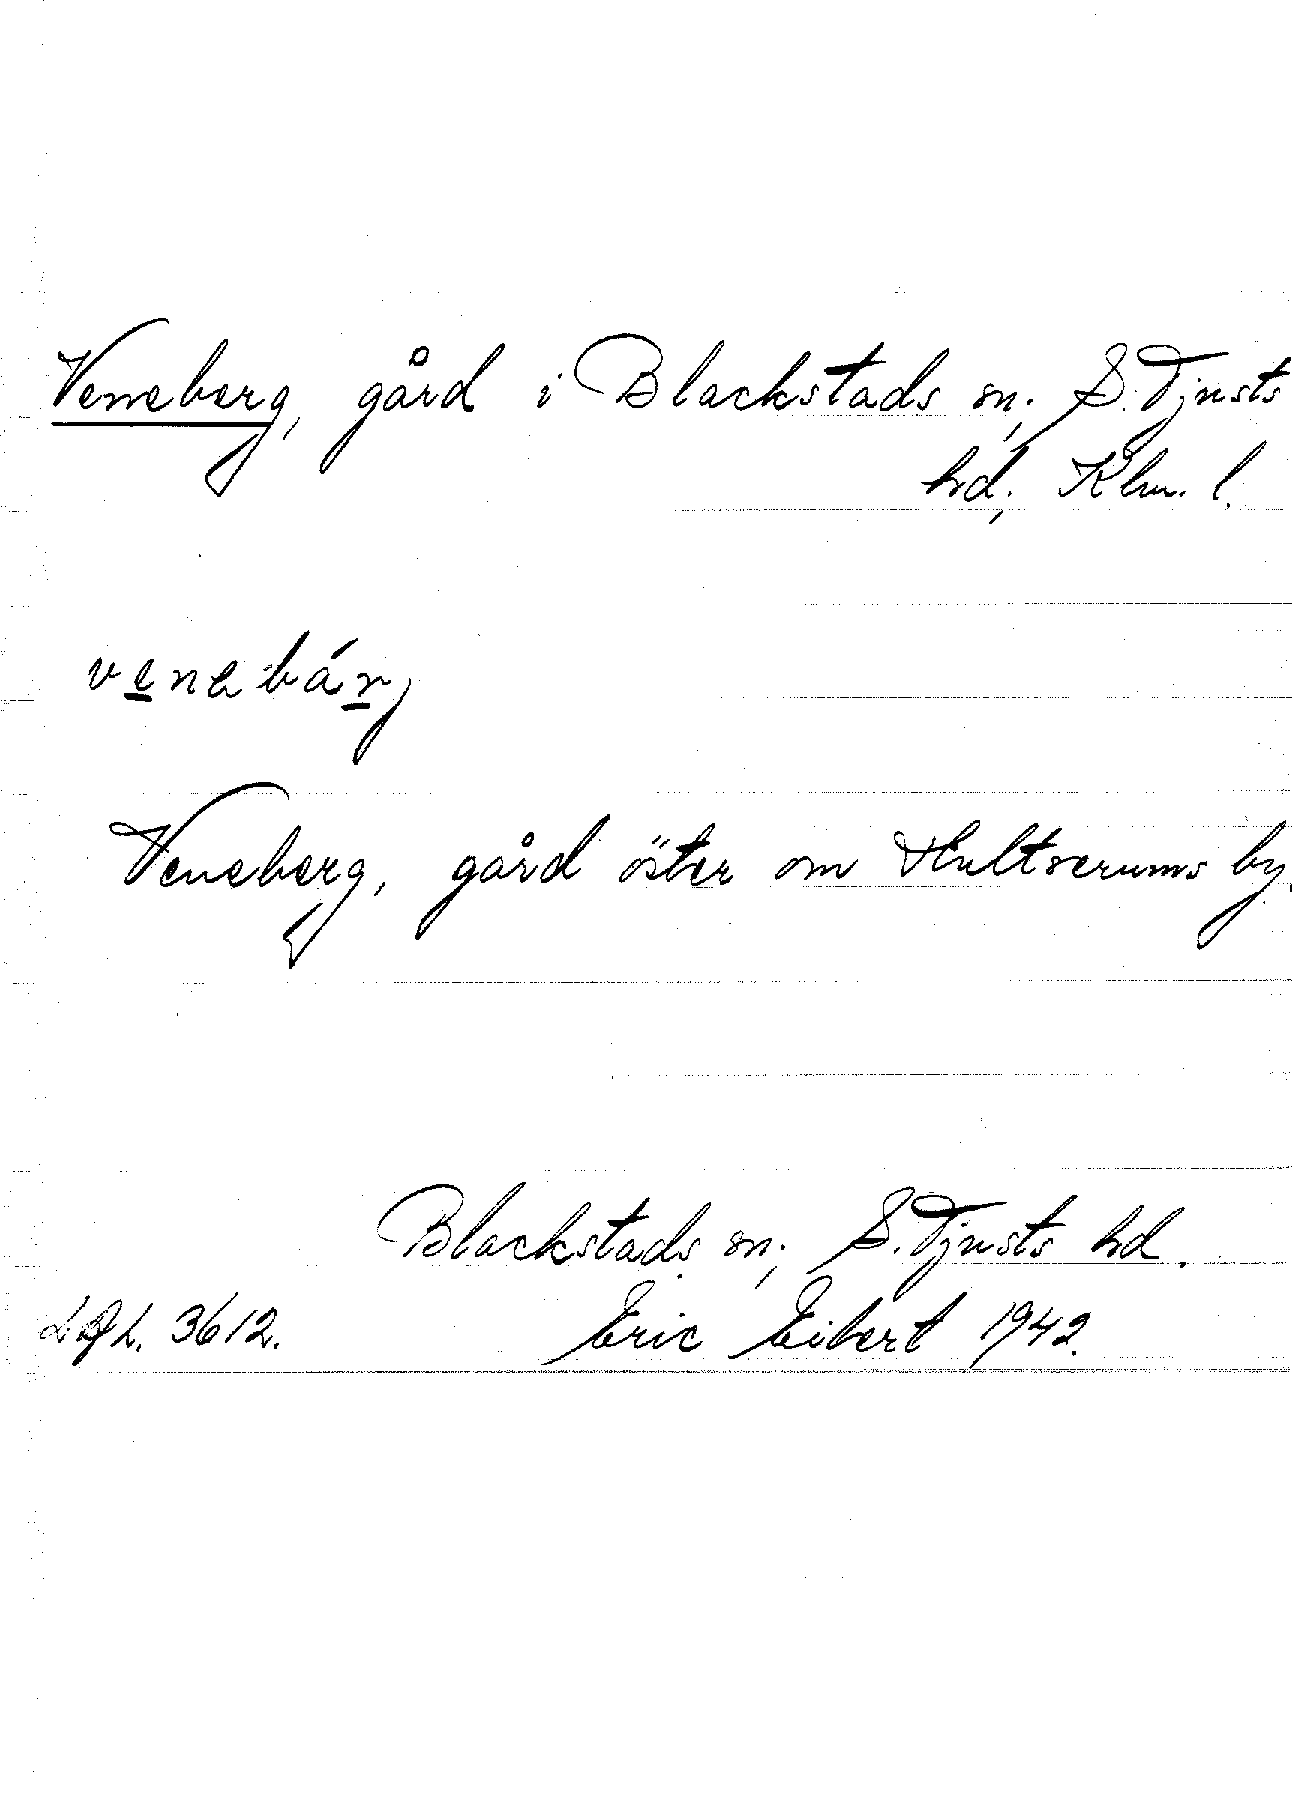 Veneberg, gård i Blackstads sn, S. Tjusts
hd, Klm. l.
venabárj
Veneberg, gård öster om Hultserums by.
Blackstads sn, S. Tjusts hd.
3612. Eric Eibert 1942.